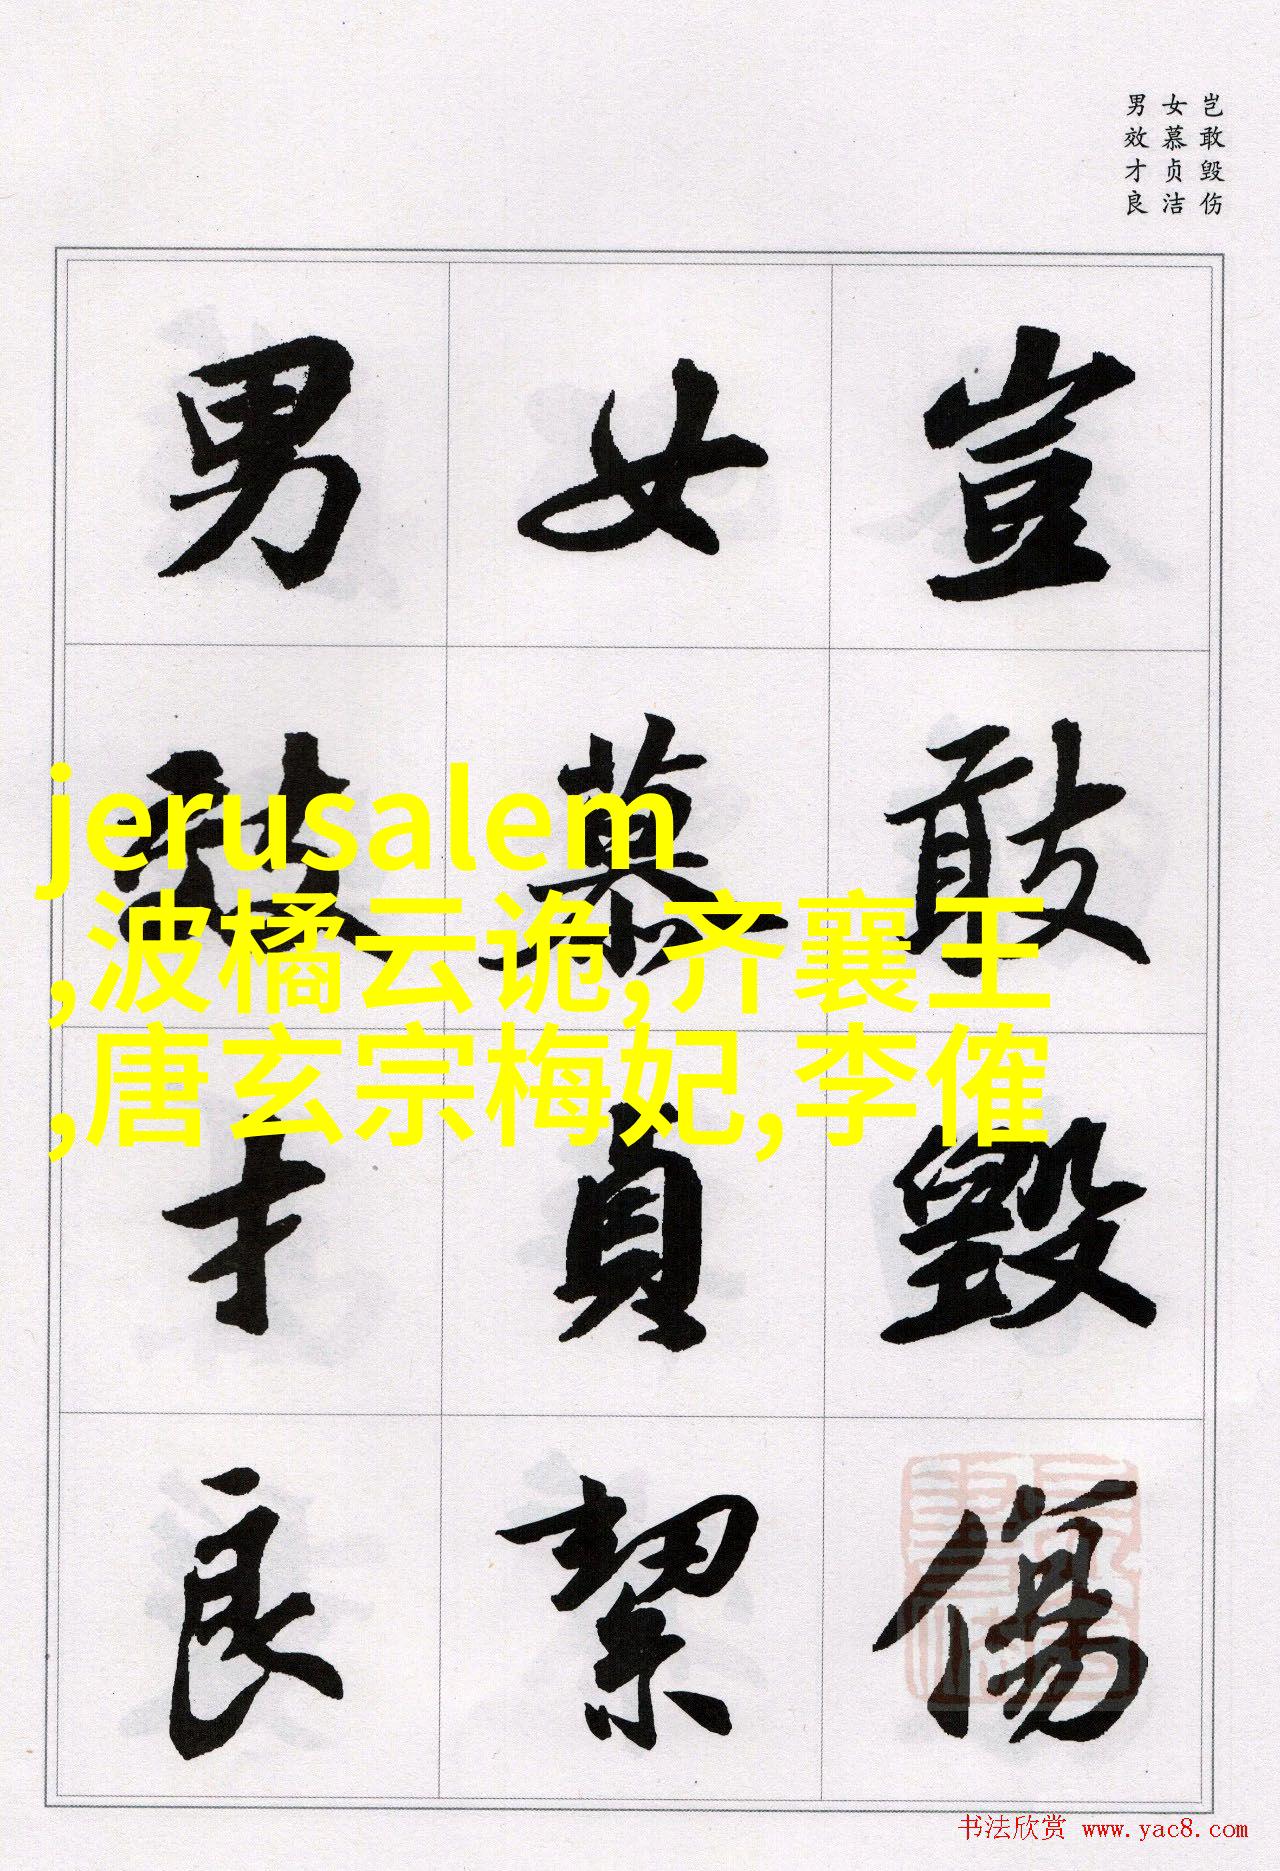 岂敢毁伤
女慕贞洁
男效才良
豈敢毀傷
女慕貞絜
男效才良
jerusalem
,波橘云诡,齐襄王
,唐玄宗梅妃,李傕
书法欣赏 www.yac8.com